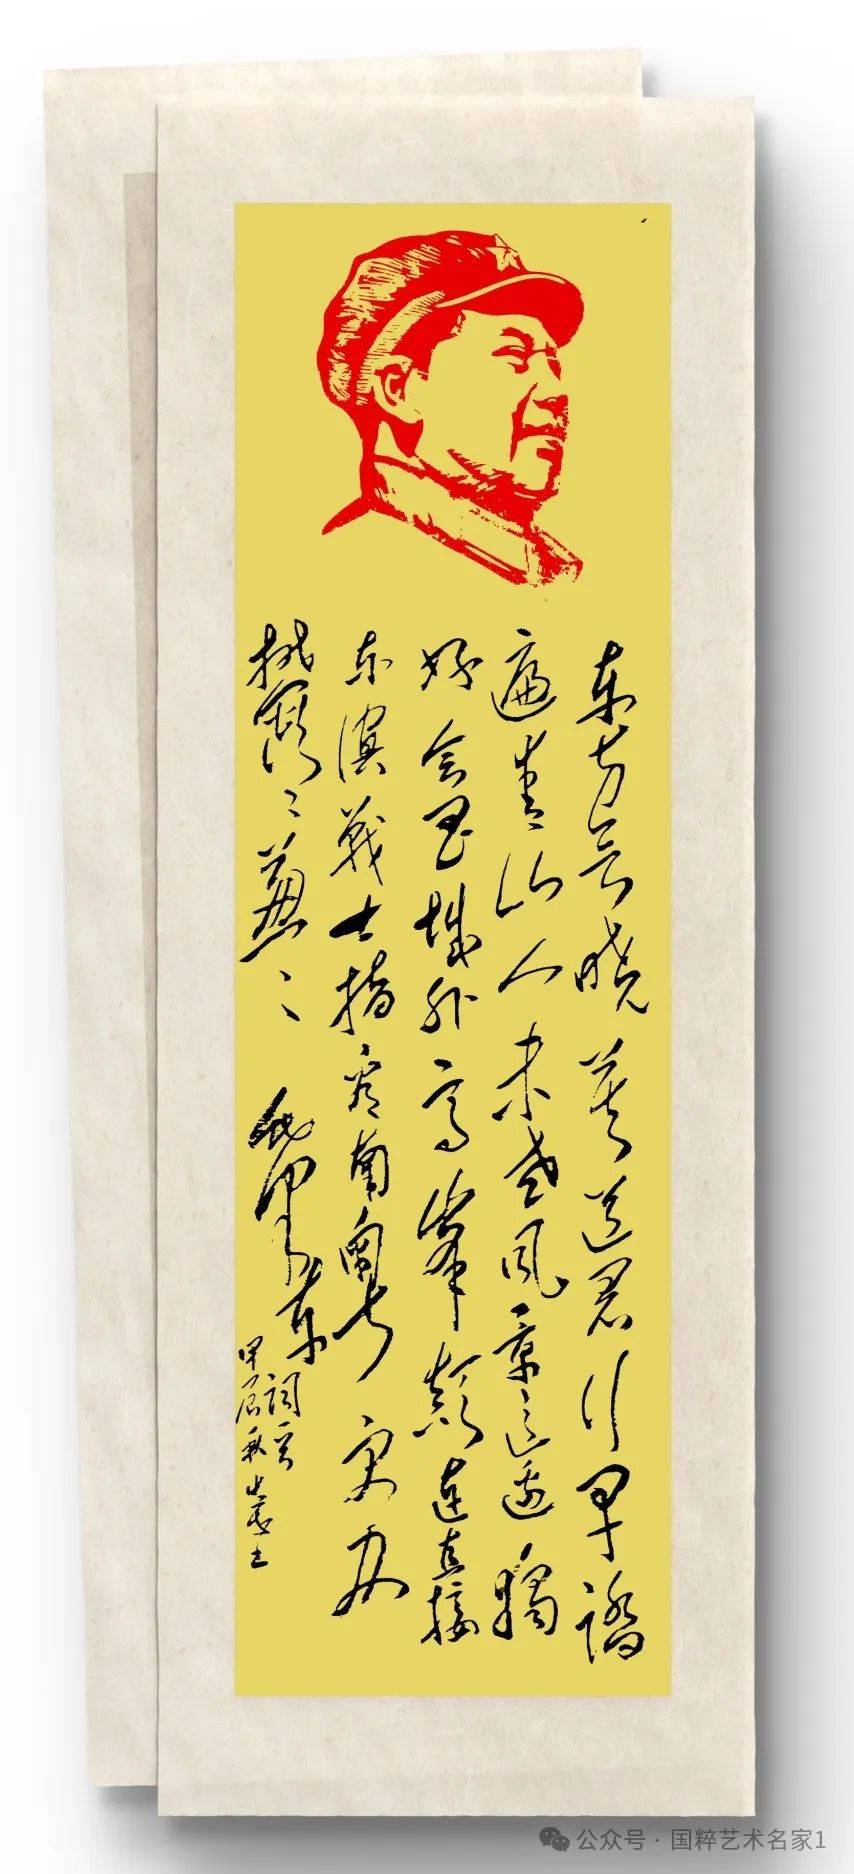 东方欲晓莫道君行早踏
遍青山人未老风景这边獨
好会昌城外高峰颠连直接
东溟戰士指看南粤更加
鬱〻葱〻 毛泽东
词
甲辰秋
公众号 · 国粹艺术名家1